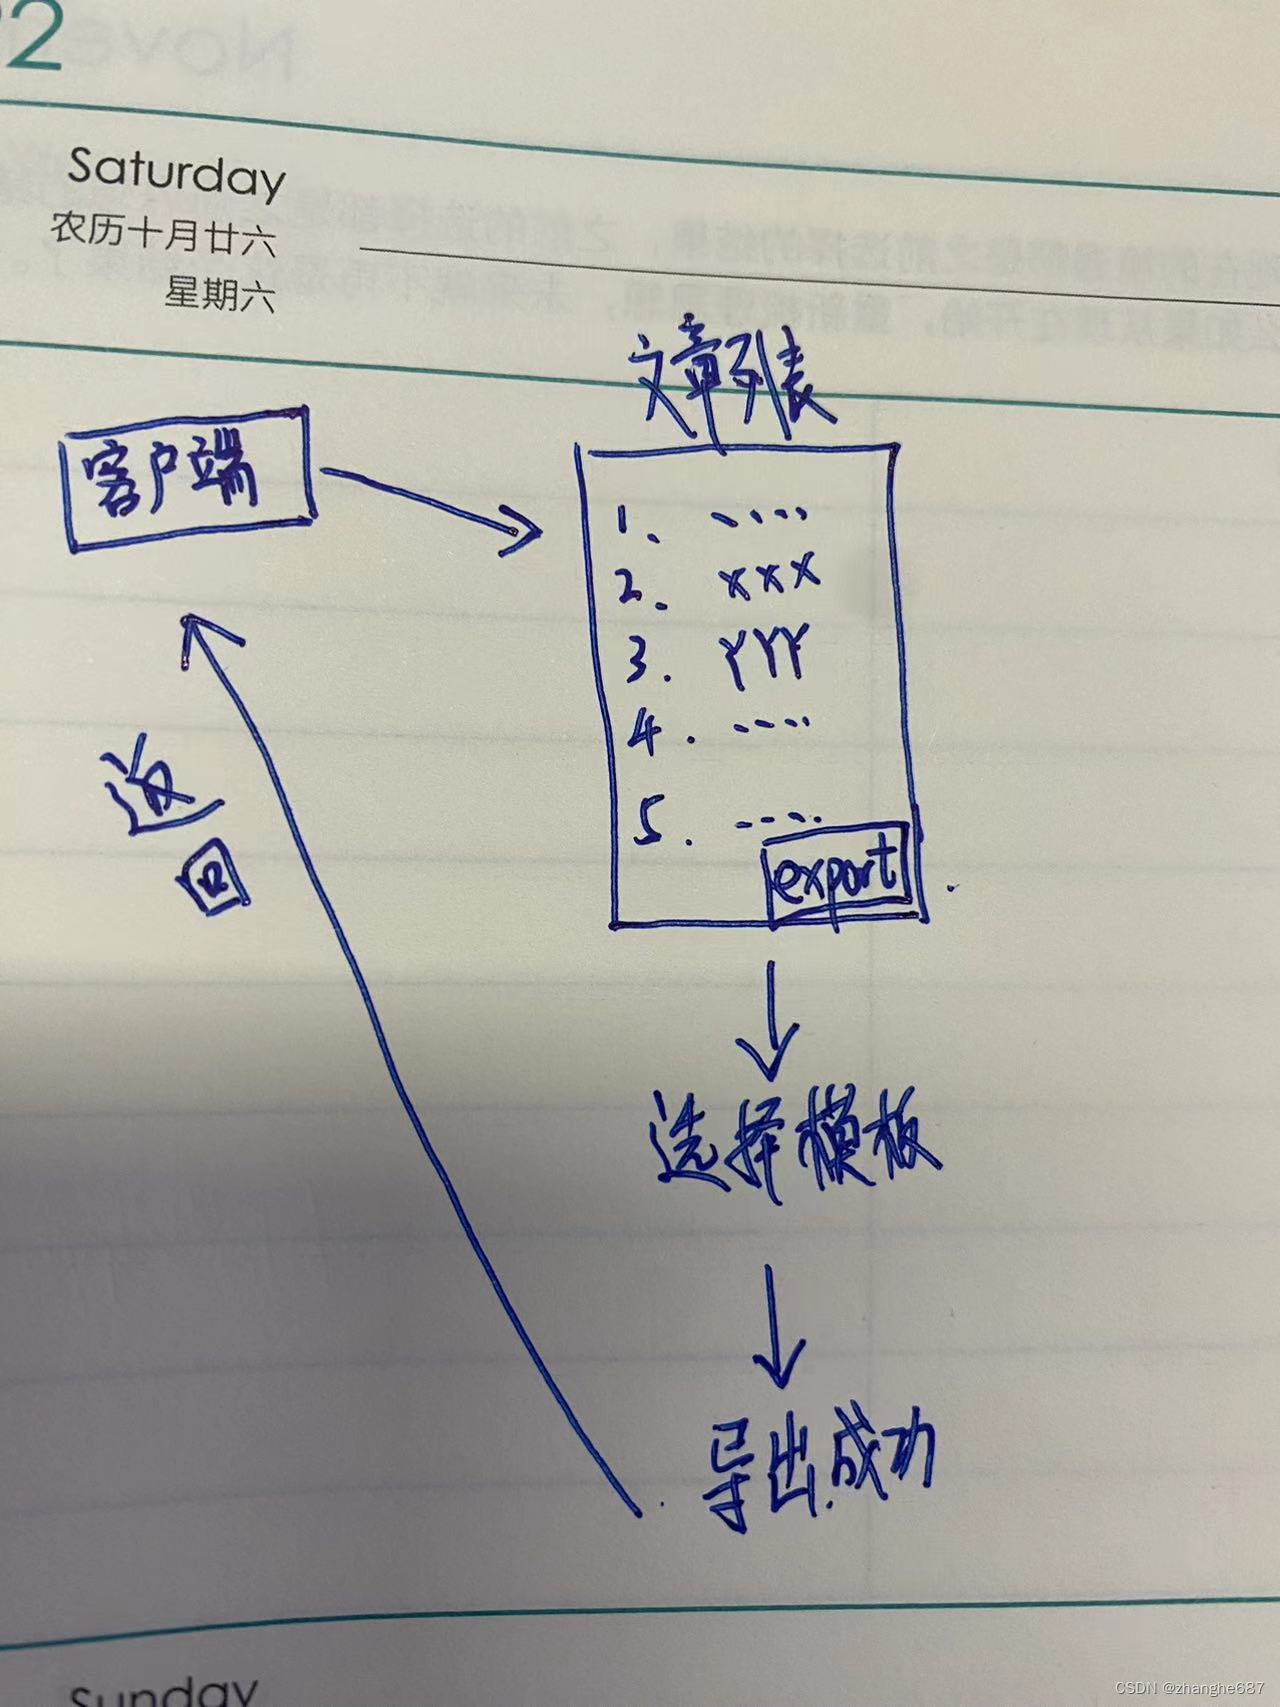 22
Saturday
农历十月廿六
星期六
文章列表
客户端
1、 ....
2. xxx
3. YYY
4. ....
5. ....
export
返回
选择模板
导出成功
Sunday
CSDN @zhanghe687